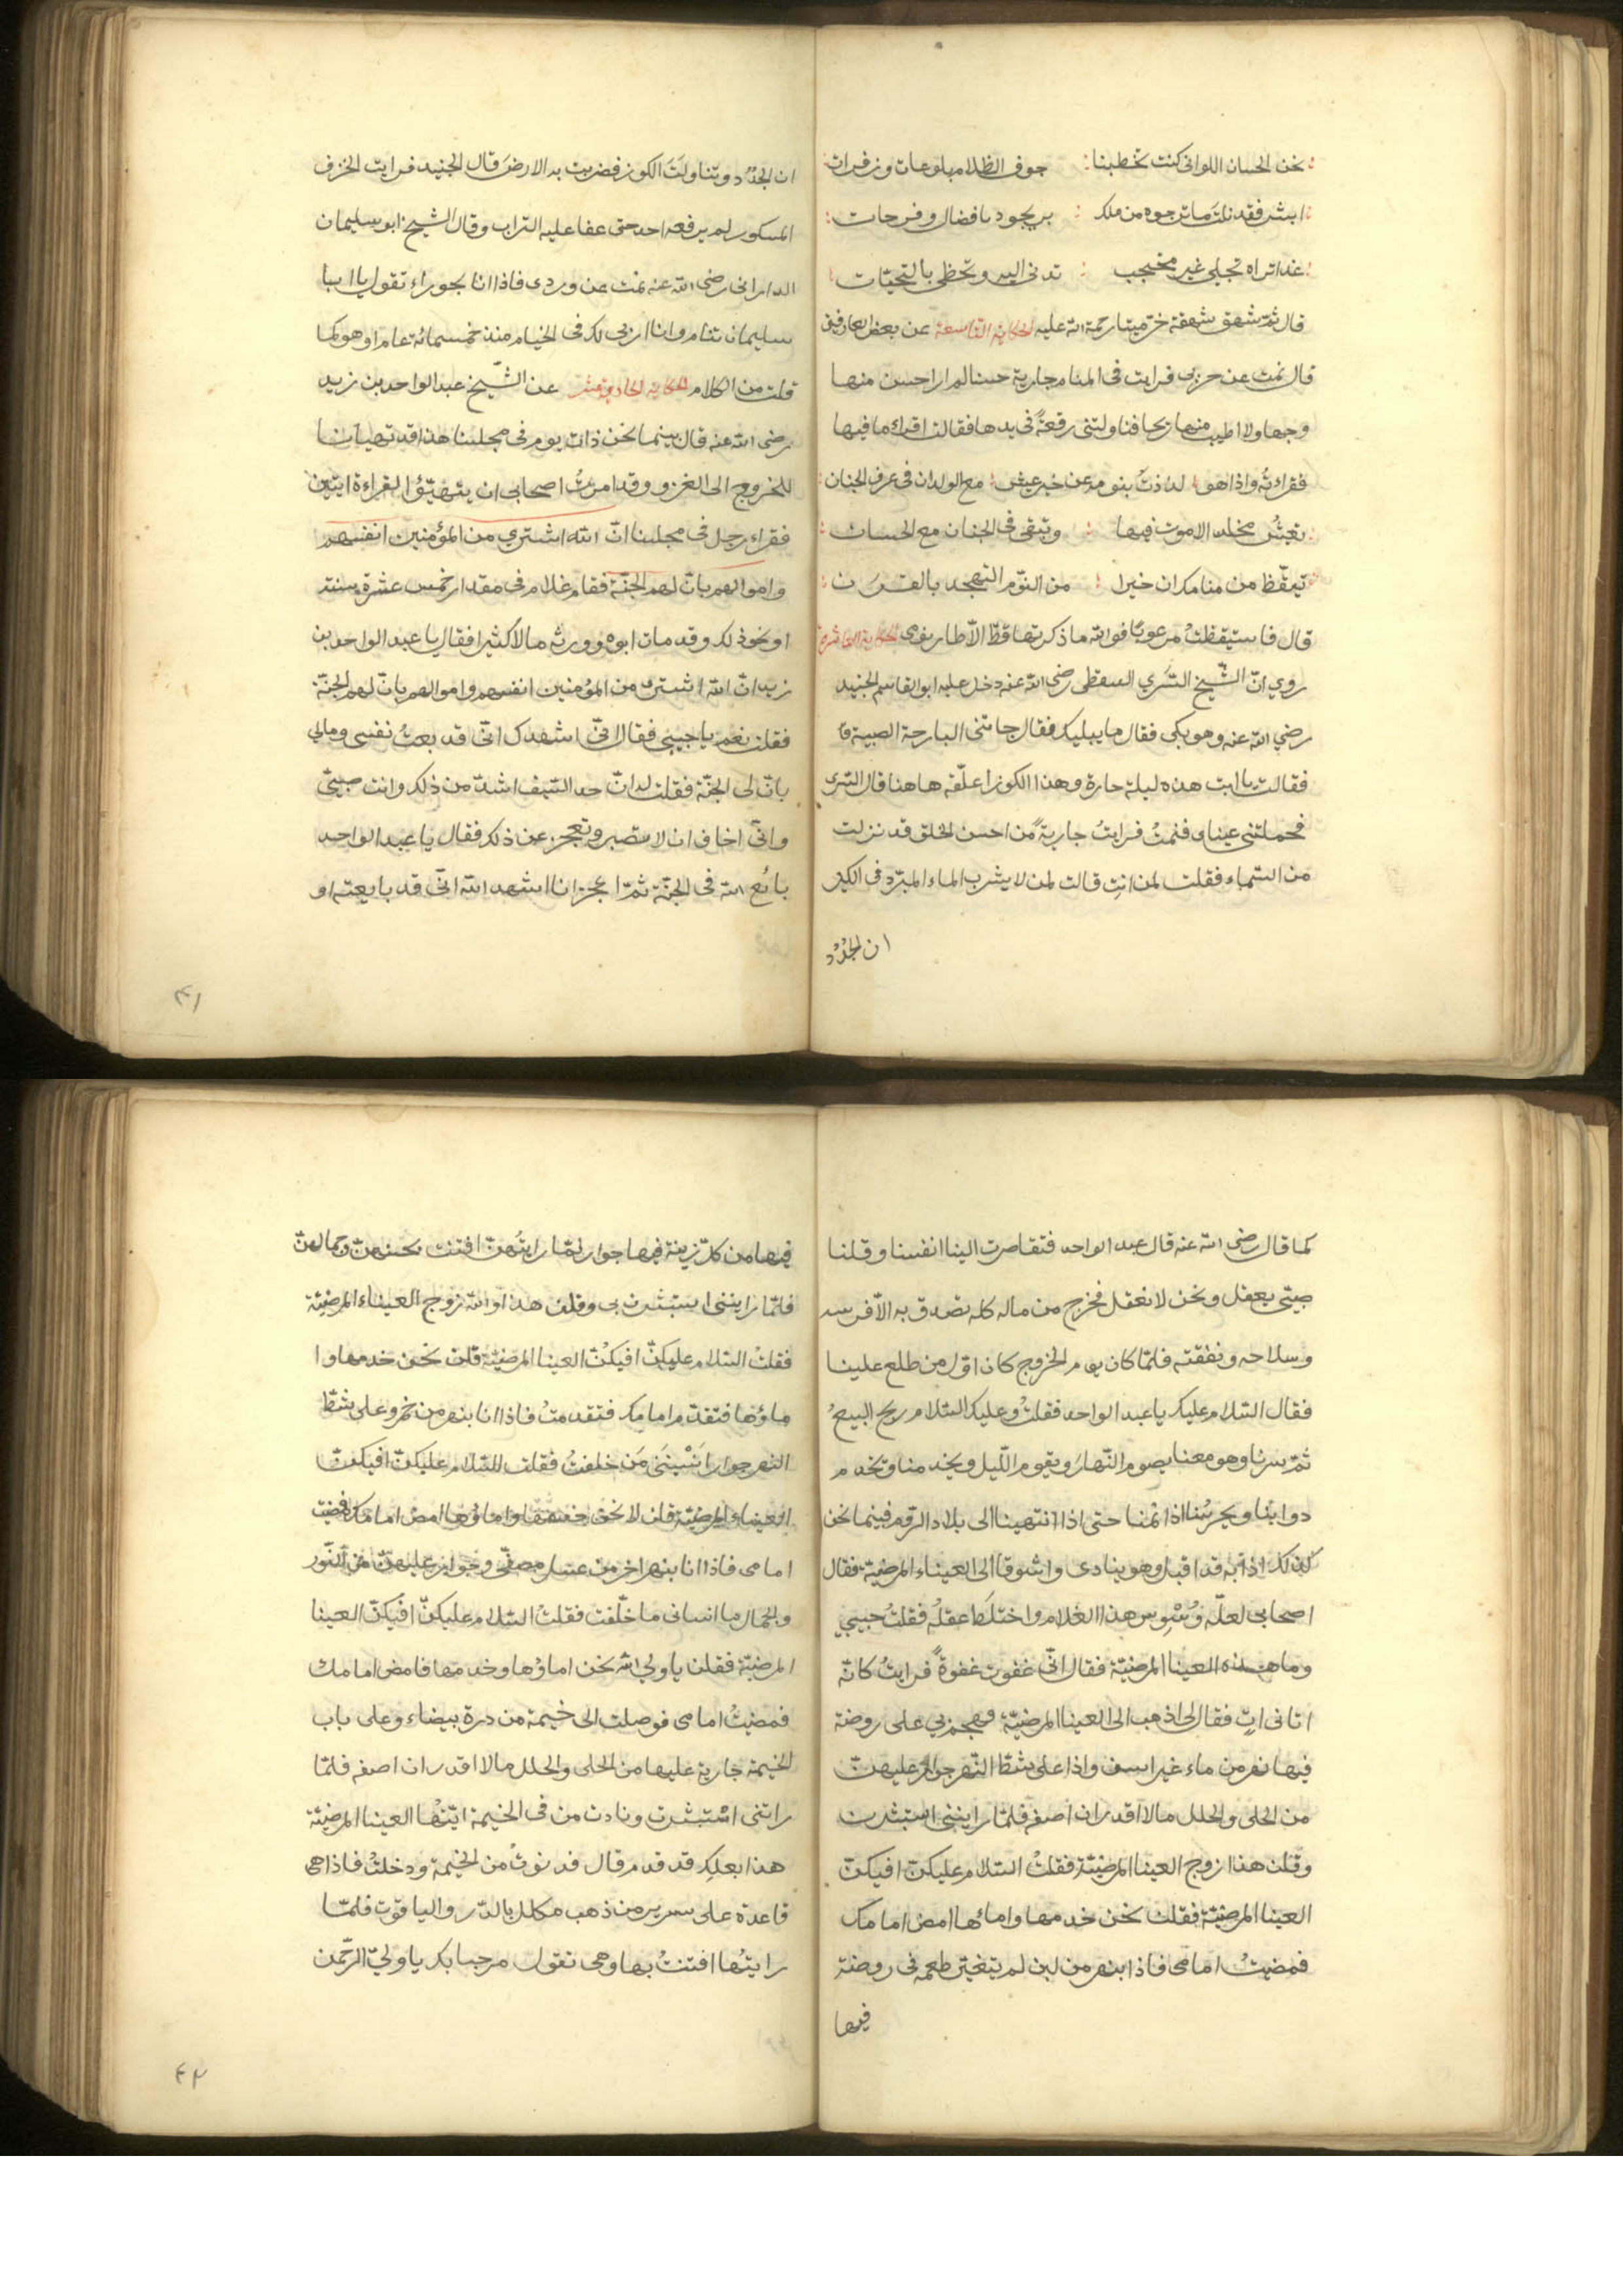 نحن الحسان اللواتى كنت تخطبنا : جوف الظلام بلوعات وزفرات
ابشر فقد نلت ما ترجوه من ملك : بر يجود بافضال وفرحات
غدا تراه تجلى غير محتجب : تدنى اليه وتحظى بالتحيات
قال ثمّ شهق شهقة خرّ ميتا رحمة الله عليه الحكاية التاسعة عن بعض العارفين
قال نمت عن حزبى فرايت فى المنام جارية حسنا لم ار احسن منها
وجها ولا اطيب منها ريحا فناولتنى رقعةً فى يدها فقالت اقراء ما فيها
فقراءتُه واذا هو : لذذتَ بنومة عن خير عيش : مع الولدان فى غرف الجنان
تعيشُ مخلد الا موت فيها : وتبقى فى الجنان مع الحسان
تيقّظ من منامك ان خيرا : من النوّم التهجد بالقرءان
قال فاستيقظتُ مرعوبًا فوالله ما ذكرتها قطّ الّا طار نومى الحكاية العاشرة
روي انّ الشّيخ السّري السقطى رضى الله عنه دخل عليه ابو القاسم الجنيد
رضي الله عنه وهو يبكى فقال ما يبليك فقال جاءتنى البارحة الصبية
فقالت يا ابت هذه ليلة حارة وهذا الكوز اعلّقه هاهنا قال السّرى
فحملتنى عيناى فنمتُ فرايتُ جاريةً من احسن الخلق قد نزلت
من السّماء فقلت لمن انتِ قالت لمن لا يشرب الماء المبرّد فى الكيز
ان الجُدُد
ان الجُدُد وتناولَتَ الكوز فضربت به الارضَ قال الجنيد فرايت الخزف
المسكور لم يرفعه احد حتى عفا عليه التراب وقال الشيخ ابو سليمان
الدارانى رضى الله عنه نمت عن وردى فاذا انا بحوراء تقول يا ابا
سليمان تنام وانا اربى لك فى الخيام منذ خمسمائة عام او هو كما
قلت من الكلام الحكاية الحادى عشر عن الشّيخ عبد الواحد بن زيد
رضى الله عنه قال بينما نحن ذات يوم فى مجلسنا هذا قد تهيانا
للخروج الى الغزو وقد امرتُ اصحابى ان يتهيّؤا لقراءة ايتين
فقراء رجل فى مجلسنا انّ الله اشترى من المؤمنين انفسهم
واموالهم بانّ لهم الجنّة فقام غلام فى مقدار خمس عشرة سنته
او نحو ذلك وقد مات ابوه وورثه مالا كثيرا فقال يا عبد الواحد بن
زيد انّ الله اشترى من المؤمنين انفسهم واموالهم بانّ لهم الجنّة
فقلت نعم يا حبيبى فقال انّى اشهدك انّى قد بعتُ نفسى ومالي
بانّ لى الجنّة فقلت له انّ حد السّيف اشدّ من ذلك وانت صبيّ
وانّى اخاف ان لا تصبر وتعجز عن ذلك فقال يا عبد الواحد
بائع الله فى الجنّة ثمّ اعجز انا اشهد الله انّى قد بايعته او
٤١
كما قال رضى الله عنه قال عبد الواحد فتقاصرت الينا انفسنا وقلنا
صبيّ يعقل ونحن لا نعقل فخرج من ماله كله تصدق به الّا فرسه
وسلاحه ونفقته فلمّا كان يوم الخروج كان اوّل من طلع علينا
فقال السّلام عليك يا عبد الواحد فقلتُ وعليك السّلام ربح البيعُ
ثمّ سرنا وهو معنا يصوم النّهار ويقوم اللّيل ويخدمنا ويخدم
دوابنا ويحرسُنا اذا نمنا حتى اذا انتهينا الى بلاد الروم فبينما نحن
كذلك اذا به قد اقبل وهو ينادى واشوقا الى العيناء المرضيّة فقال
اصحابى لعلّه وُسْوِس هذا الغلام واختلَطَ عقلُه فقلتُ حبيبي
وما هذه العينا المرضيّة فقال انّى غفوت غفوةً فرايتُ كانّه
اتانى اتٍ فقال لى اذهب الى العينا المرضيّة وهجم بي على روضة
فيها نهر من ماء غير اسف واذا على شطّ النّهر جوار عليهنّ
من الحلى والحلل مالا اقدر ان اصفه فلمّا راينى استبشرت
وقلن هذا زوج العينا المرضيّة فقلتُ السّلام عليكنّ افيكنّ
العينا المرضيّة فقلن نحن خدمها وامائها امض امامك
فمضيتُ امامى فاذا بنهر من لبن لم يتغيّر طعمه فى روضة
فيها
فيها من كلّ زينة فيها جوار لمّا رايتُهنّ افتنت بحسنهنّ وجمالهنّ
فلمّا رايننى استبشرت بى وقلن هذا والله زوج العيناء المرضيّة
فقلتُ السّلام عليكنّ افيكنّ العينا المرضيّة قلن نحن خدمها وا
ماؤها فتقدّم امامك فتقدمتُ فاذا انا بنهر من خمر وعلى شطّ
النهر جوار انسْينَنى مَن خلفتُ فقلت السّلام عليكنّ افيكنّ
العيناء المرضيّة قلن لا نحن خدمها واماؤها امض امامك فمضيت
امامى فاذا انا بنهر اخر من عسل مصفّى وجوار عليهنّ من النّور
والجمال ما انسانى ما خلّفت فقلتُ السّلام عليكنّ افيكنّ العينا
المرضيّة فقلن يا ولي الله نحن اماؤها وخدمها فامض امامك
فمضيتُ امامى فوصلت الى خيمة من درة بيضاء وعلى باب
الخيمة جارية عليها من الحلى والحلل مالا اقدر ان اصفه فلمّا
راتنى اسْتبشرت ونادت من فى الخيمة ايّتُها العينا المرضيّة
هذا بعلِك قد قدم قال فدنوتُ من الخيمة ودخلتُ فاذا هى
قاعدة على سرير من ذهب مكلل بالدّر والياقوت فلمّا
رايتُها افتنتُ بها وهى تقول مرحبا بك يا وليّ الرّحمن
٤٢